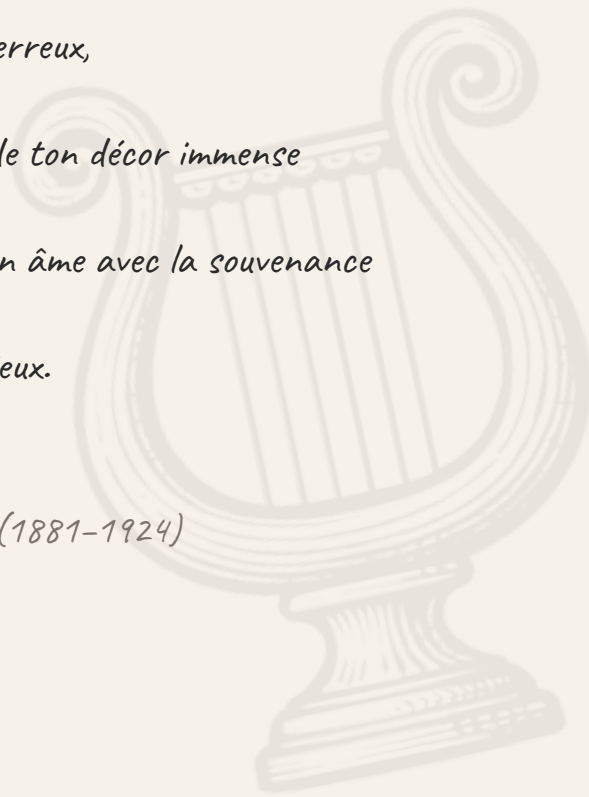 erreux,
le ton décor immense
n âme avec la souvenance
eux.
(1881–1924)